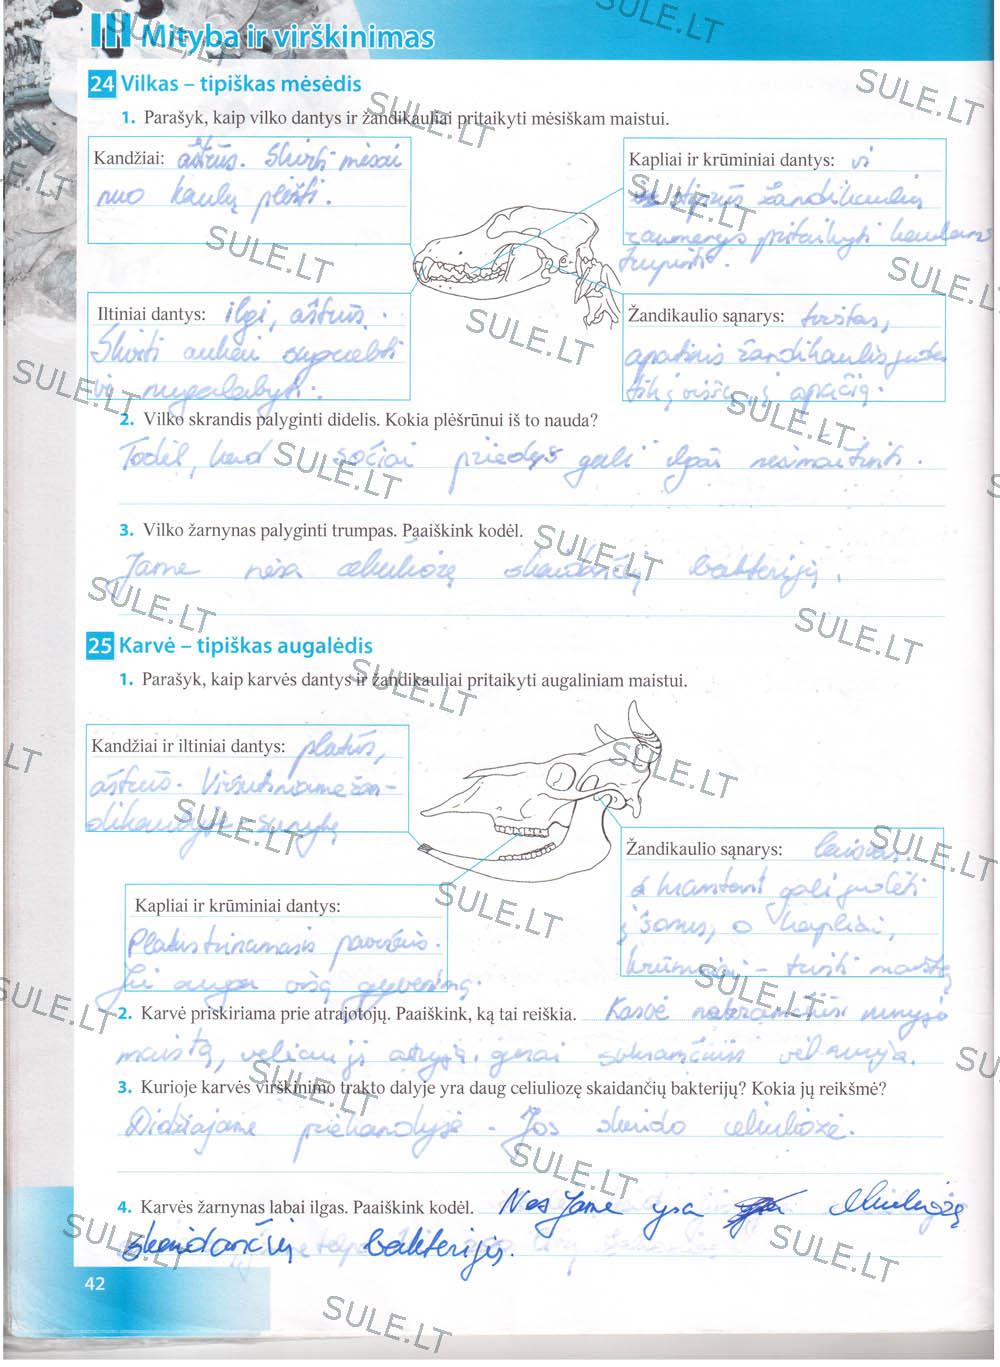 III Mityba ir virškinimas
24 Vilkas – tipiškas mėsėdis
1. Parašyk, kaip vilko dantys ir žandikauliai pritaikyti mėsiškam maistui.
Kandžiai: aštrūs. Skirti mėsai
nuo kaulų plėšti.
Kapliai ir krūminiai dantys:
stiprūs žandikaulių
raumenys pritaikyti kaulams
trupinti.
Iltiniai dantys: ilgi, aštrūs.
Skirti aukai sugriebti
ir nugalabyti.
Žandikaulio sąnarys: tvirtas,
apatinis žandikaulis juda
tik į viršų, į apačią.
2. Vilko skrandis palyginti didelis. Kokia plėšrūnui iš to nauda?
Todėl, kad sočiai priėdęs gali ilgai nesimaitinti.
3. Vilko žarnynas palyginti trumpas. Paaiškink kodėl.
Jame nėra celiuliozę skaidančių bakterijų.
25 Karvė – tipiškas augalėdis
1. Parašyk, kaip karvės dantys ir žandikauliai pritaikyti augaliniam maistui.
Kandžiai ir iltiniai dantys: platūs,
aštrūs. Viršutiniame žan-
dikaulyje sunykę
Žandikaulio sąnarys: laisvas.
kramtant gali judėti
į šonus, o kapliai,
krūminiai – trinti maistą
Kapliai ir krūminiai dantys:
Platus trinamasis paviršius.
Jie auga visą gyvenimą.
2. Karvė priskiriama prie atrajotojų. Paaiškink, ką tai reiškia. Karvė nekramčiusi nuryja
maistą, vėliau jį atryja, gerai sukramčiusi vėl nuryja.
3. Kurioje karvės virškinimo trakto dalyje yra daug celiuliozę skaidančių bakterijų? Kokia jų reikšmė?
Didžiajame prieskrandyje. Jos skaido celiuliozę.
4. Karvės žarnynas labai ilgas. Paaiškink kodėl. Nes jame yra celiuliozę
skaidančių bakterijų.
42
SULE.LT